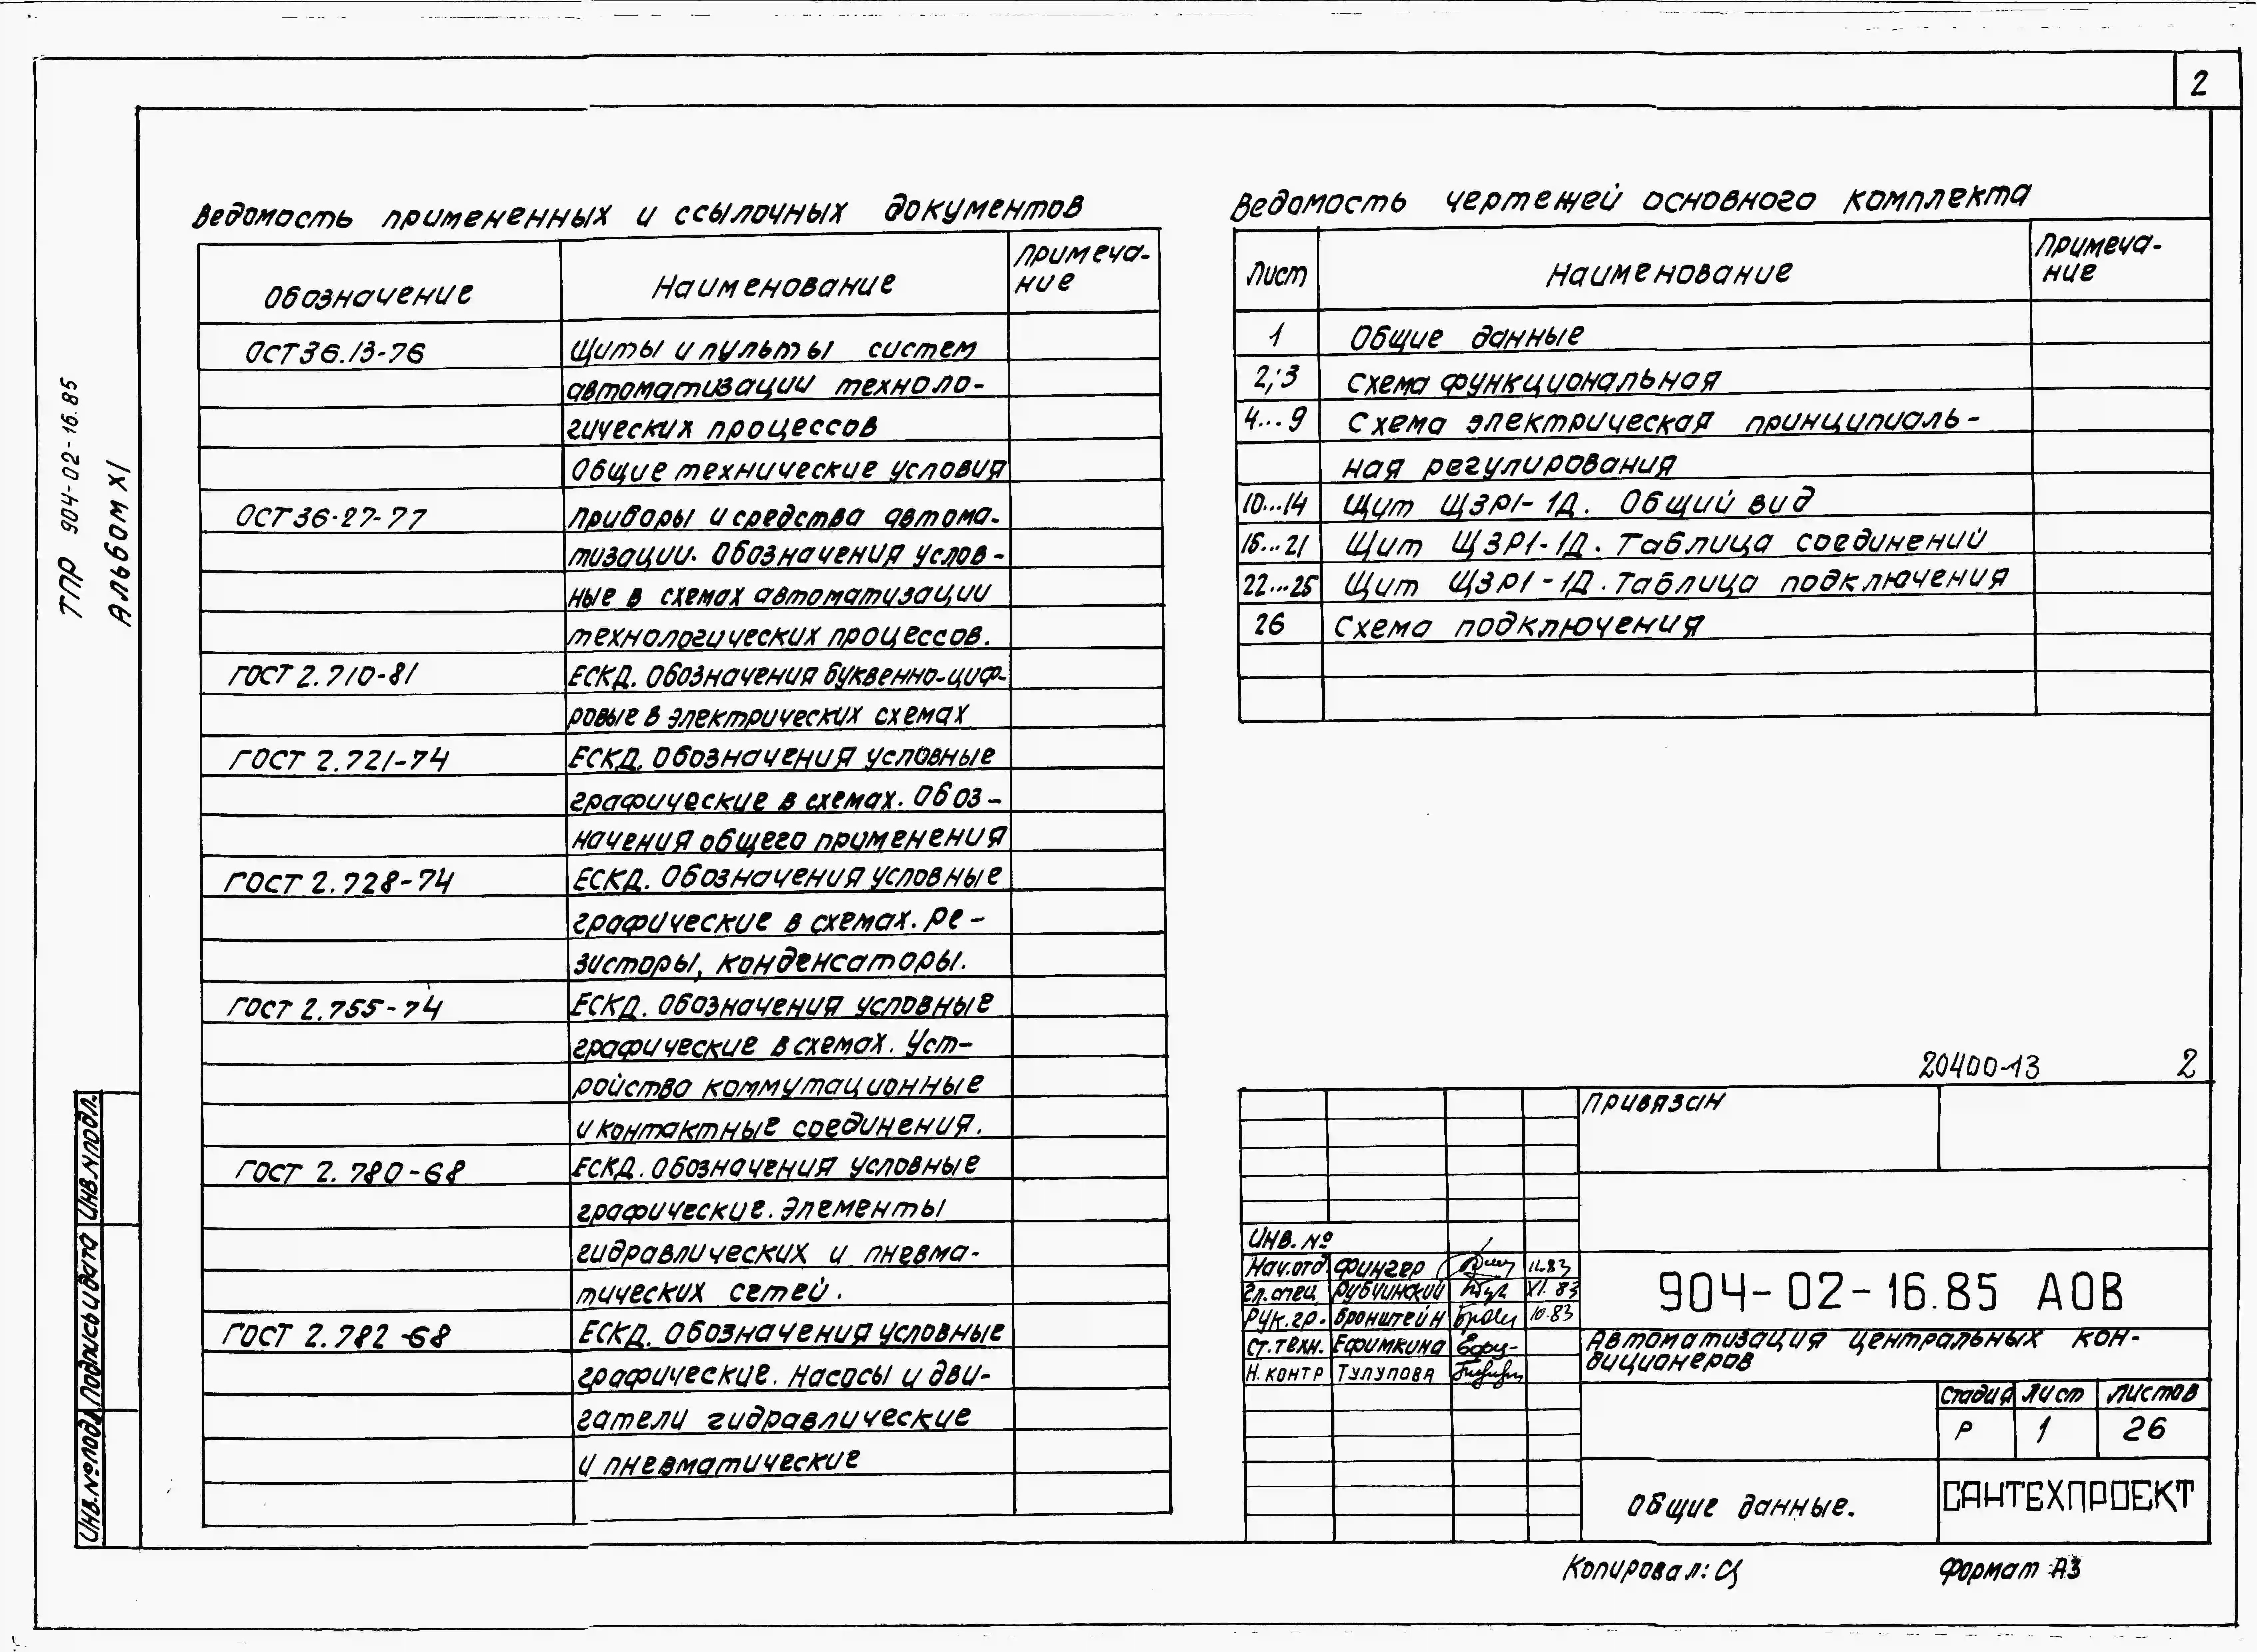 2
ТПР 904-02-16.85
Альбом XI
Ведомость примененных и ссылочных документов
Обозначение
Наименование
Примеча-
ние
ОСТ36.13-76
Щиты и пульты систем
автоматизации техноло-
гических процессов
Общие технические условия
ОСТ36-27-77
Приборы и средства автома-
тизации. Обозначения услов-
ные в схемах автоматизации
технологических процессов.
ГОСТ 2.710-81
ЕСКД. Обозначения буквенно-циф-
ровые в электрических схемах
ГОСТ 2.721-74
ЕСКД. Обозначения условные
графические в схемах. Обоз-
начения общего применения
ГОСТ 2.728-74
ЕСКД. Обозначения условные
графические в схемах. Ре-
зисторы, конденсаторы.
ГОСТ 2.755-74
ЕСКД. Обозначения условные
графические в схемах. Уст-
ройства коммутационные
и контактные соединения.
ГОСТ 2.780-68
ЕСКД. Обозначения условные
графические. Элементы
гидравлических и пневма-
тических сетей.
ГОСТ 2.782-68
ЕСКД. Обозначения условные
графические. Насосы и дви-
гатели гидравлические
и пневматические
Ведомость чертежей основного комплекта
Лист
Наименование
Примеча-
ние
1 Общие данные
2;3 Схема функциональная
4...9 Схема электрическая принципиаль-
ная регулирования
10...14 Щит ЩЗР1-1Д. Общий вид
15...21 Щит ЩЗР1-1Д. Таблица соединений
22...25 Щит ЩЗР1-1Д. Таблица подключения
26 Схема подключения
20400-13 2
Привязан
Инв. №
Нач.отд Фингер 11.83
Гл.спец Рубчинский XI.83
Рук.гр. Бронштейн 10.83
Ст.техн. Ефимкина
Н.контр Тулупова
904-02-16.85 АОВ
Автоматизация центральных кон-
диционеров
Стадия Лист Листов
Р 1 26
Общие данные.
САНТЕХПРОЕКТ
Инв.№подл. Подпись и дата Инв.№подл.
Копировал: Ц Формат А3